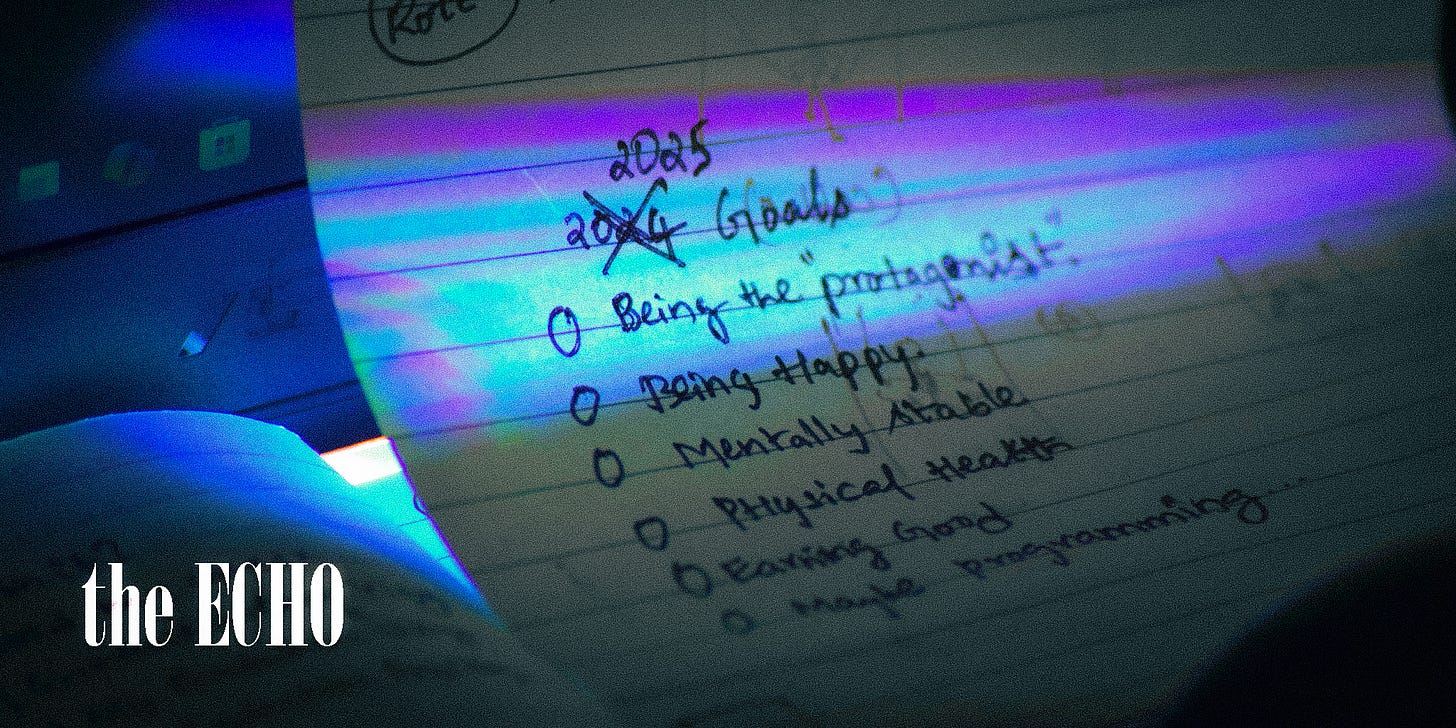 2025
2024 Goals
Being the "protagonist".
Being Happy.
Mentally stable.
Physical Health
Earning Good
Maybe programming...
the ECHO